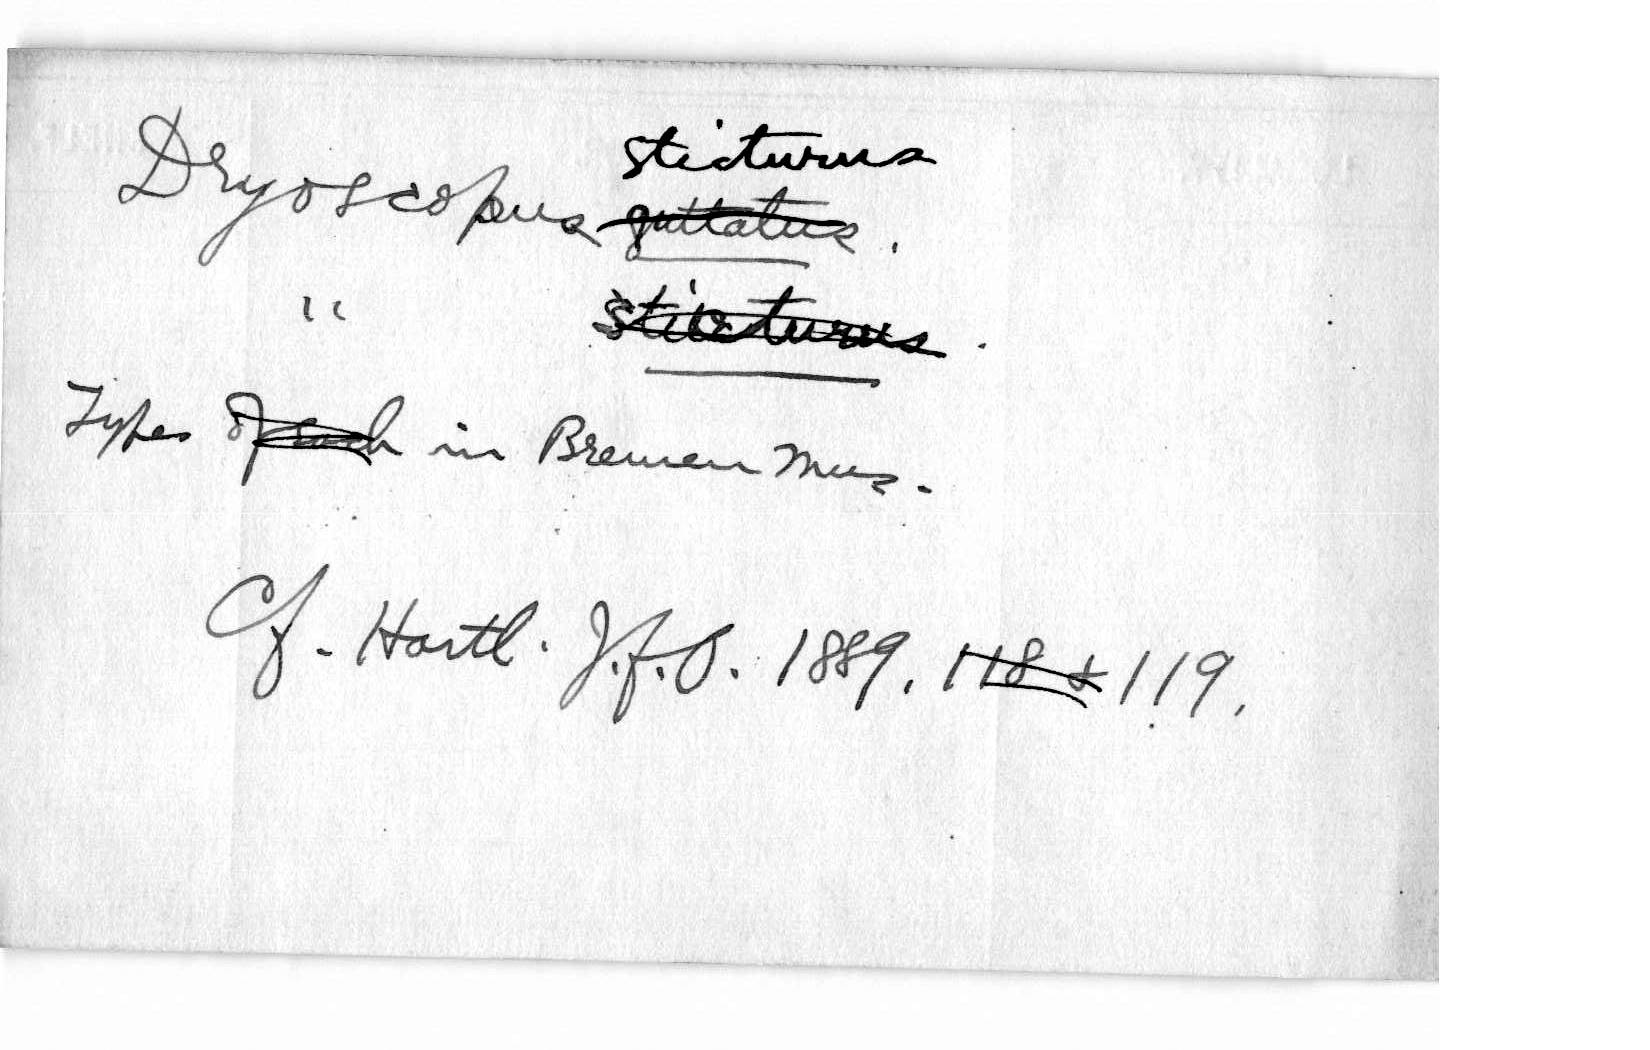 sticturus
Dryoscopus guttatus.
" sticturus.
Types of each in Bremen Mus.
Cf. Hartl. J.f.O. 1889, 118 & 119.